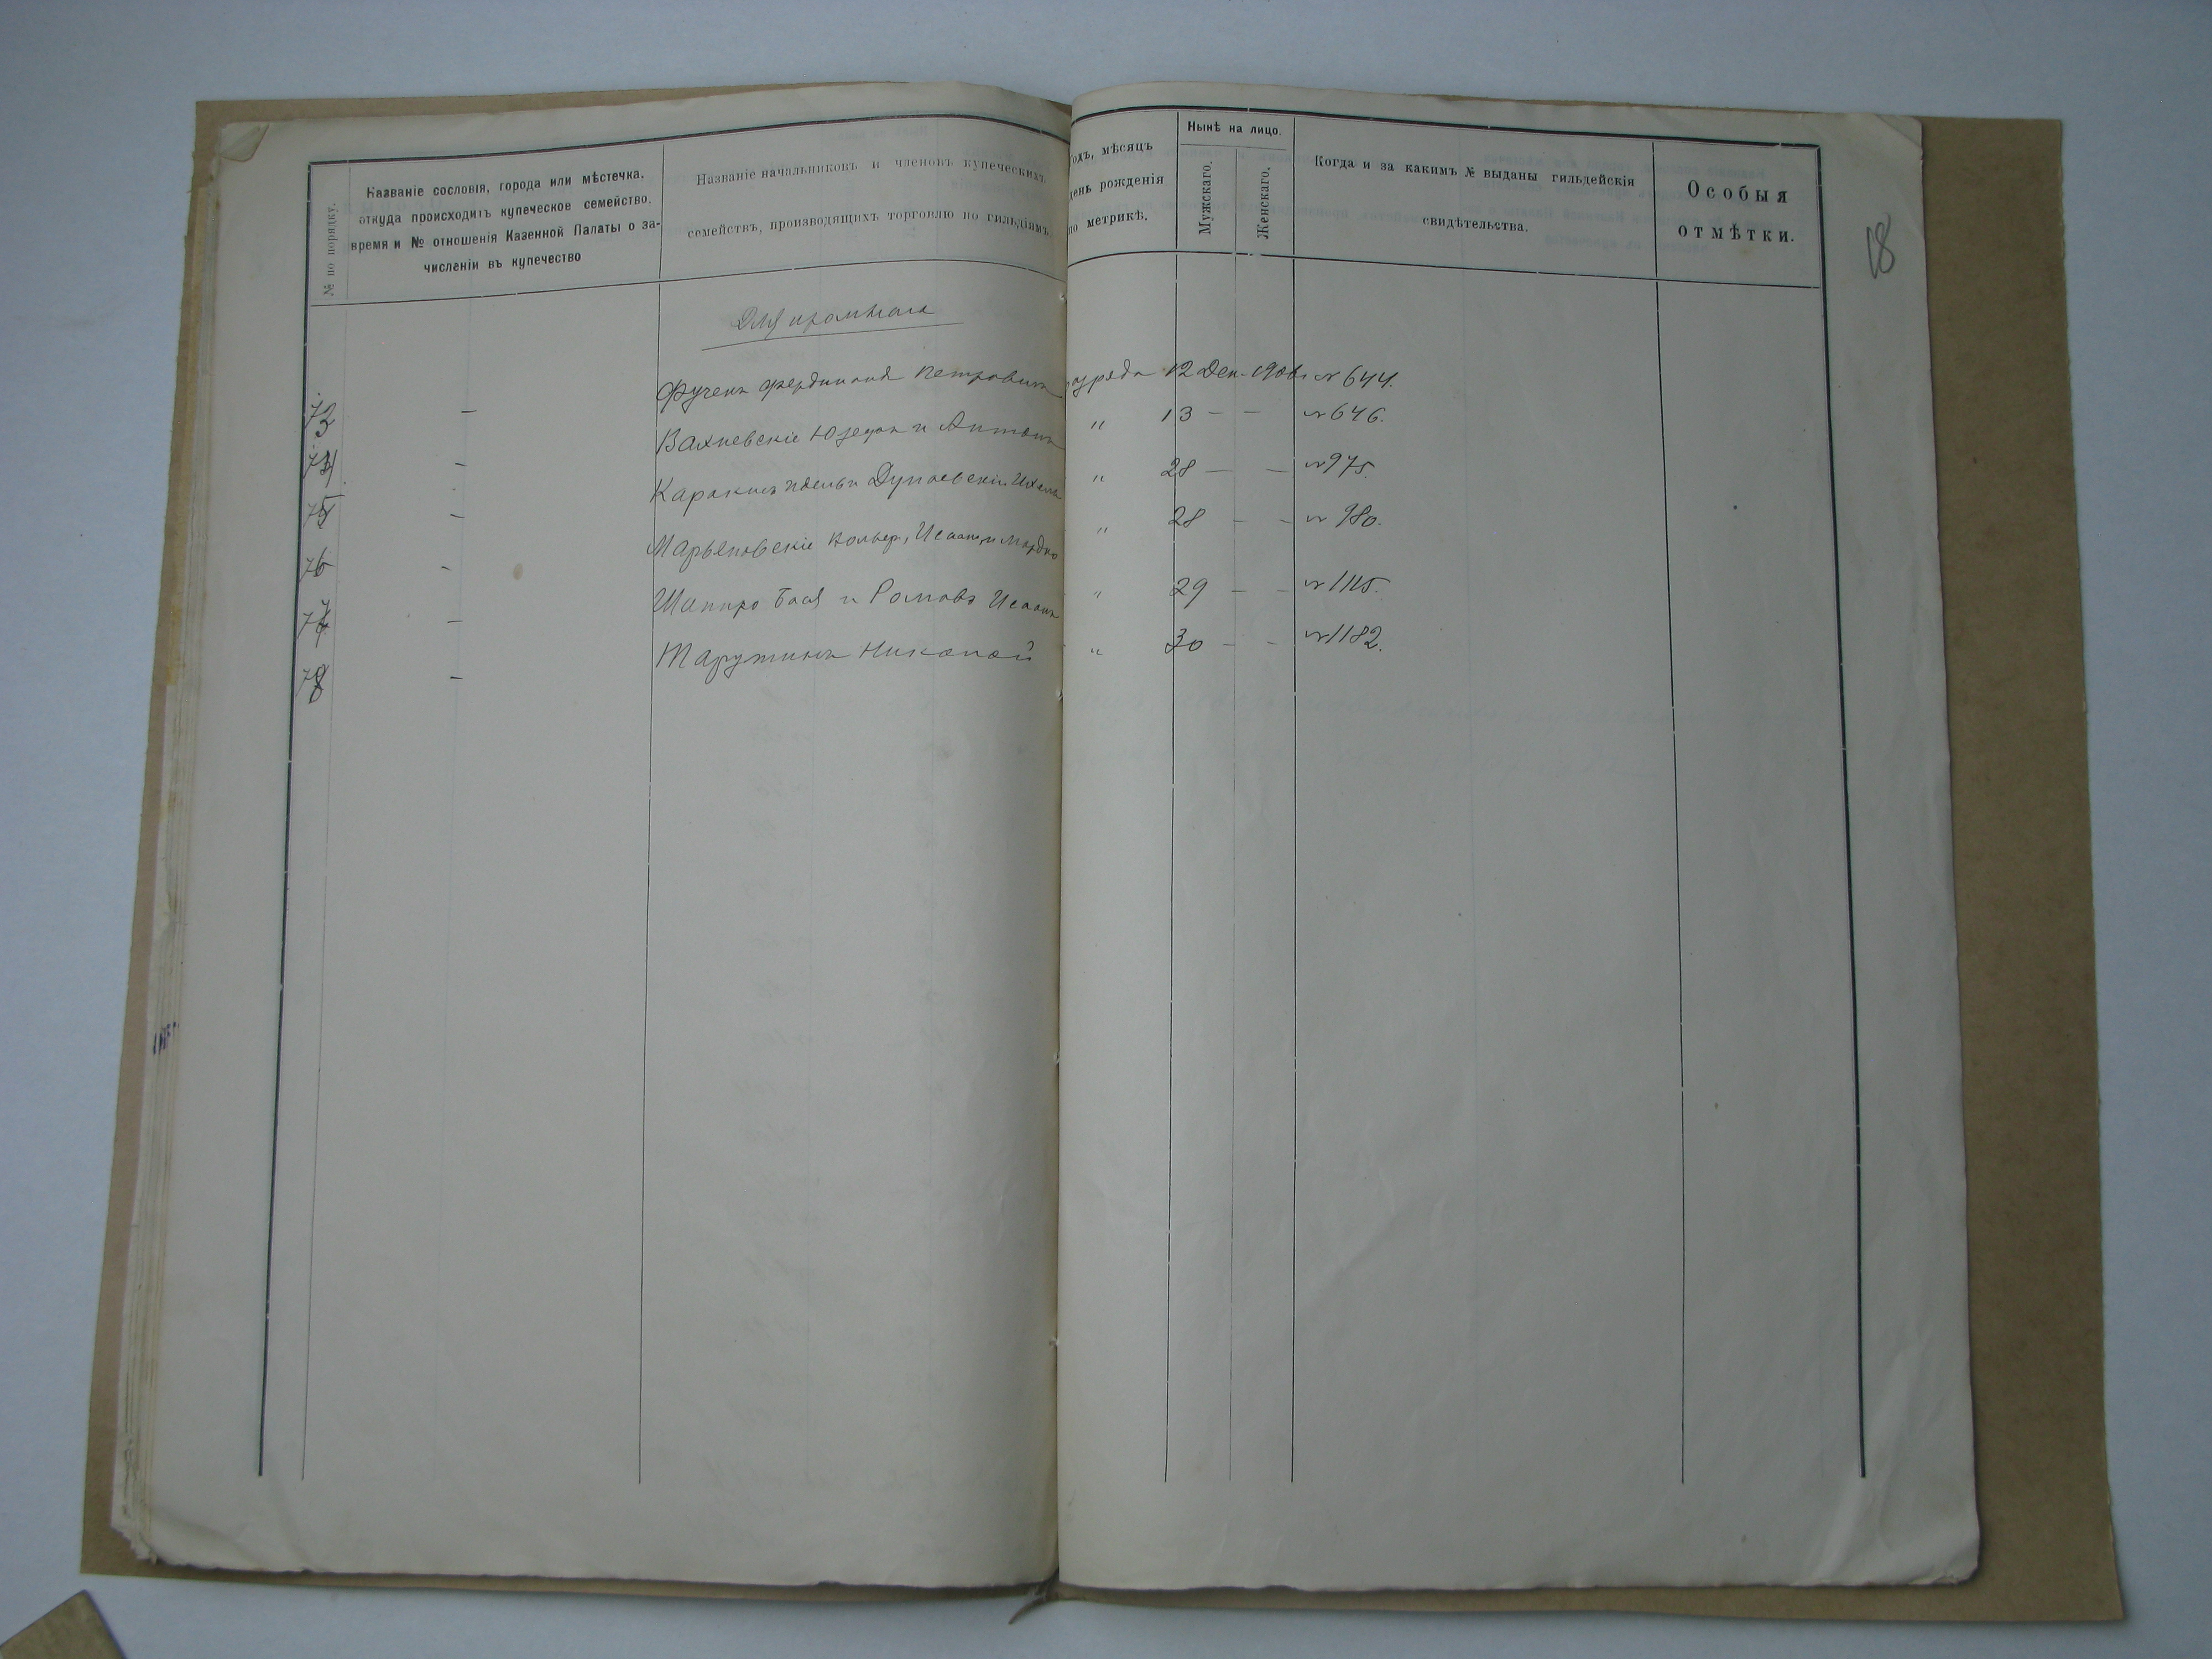 № по порядку.
Названіе сословія, города или мѣстечка,
откуда происходитъ купеческое семейство,
время и № отношенія Казенной Палаты о за-
численіи въ купечество
Названіе начальниковъ и членовъ купеческихъ
семействъ, производящихъ торговлю по гильдіямъ
Годъ, мѣсяцъ
день рожденія
по метрикѣ.
Нынѣ на лицо.
Мужскаго.
Женскаго.
Когда и за какимъ № выданы гильдейскія
свидѣтельства.
Особыя
отмѣтки.
18
Для
73 — Фердинанд Петровичъ 12 Дек. № 644.
74 — Вахневскіе Юзефъ и Антонъ " 13 — — № 646.
75 — Дунаевскій " 28 — — № 975.
76 - Марьяновскіе " 28 — — № 980.
77 — Шапиро Бася и Исаакъ " 29 — — № 1115.
78 — Николай " 30 — — № 1182.